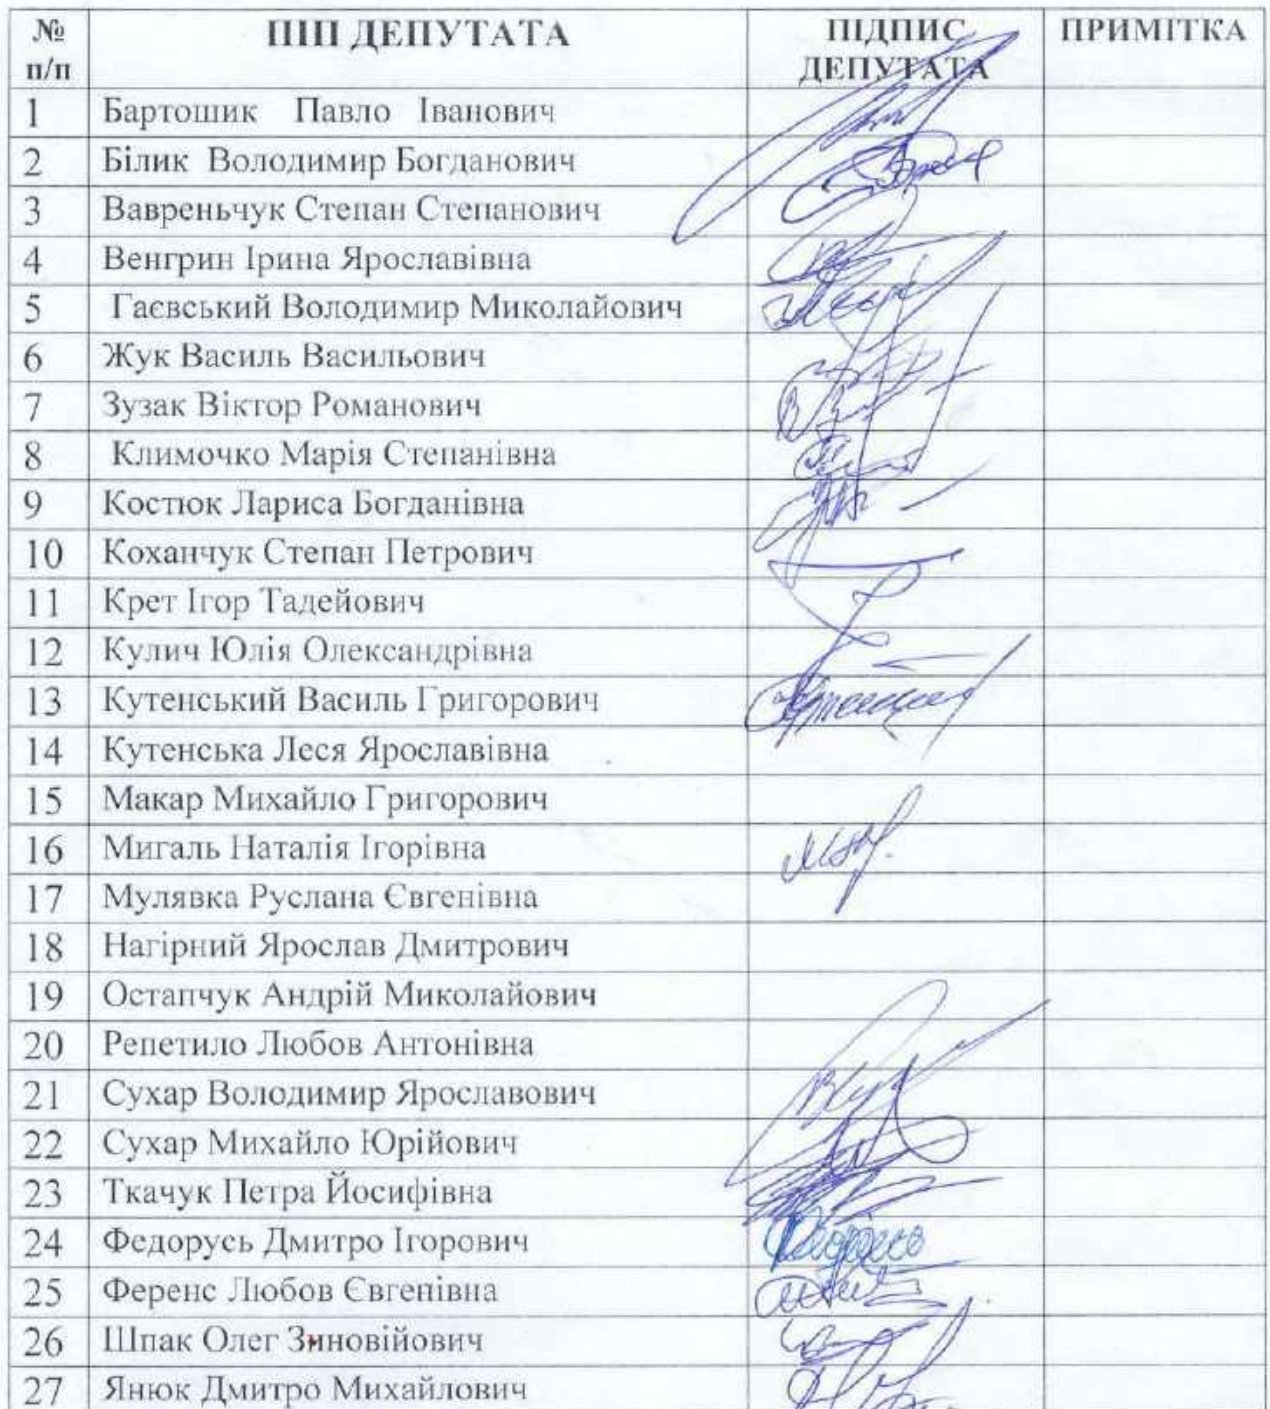 № п/п ПІП ДЕПУТАТА ПІДПИС ДЕПУТАТА ПРИМІТКА
1 Бартошик Павло Іванович
2 Білик Володимир Богданович
3 Вавреньчук Степан Степанович
4 Венгрин Ірина Ярославівна
5 Гаєвський Володимир Миколайович
6 Жук Василь Васильович
7 Зузак Віктор Романович
8 Климочко Марія Степанівна
9 Костюк Лариса Богданівна
10 Коханчук Степан Петрович
11 Крет Ігор Тадейович
12 Кулич Юлія Олександрівна
13 Кутенський Василь Григорович
14 Кутенська Леся Ярославівна
15 Макар Михайло Григорович
16 Мигаль Наталія Ігорівна
17 Мулявка Руслана Євгенівна
18 Нагірний Ярослав Дмитрович
19 Остапчук Андрій Миколайович
20 Репетило Любов Антонівна
21 Сухар Володимир Ярославович
22 Сухар Михайло Юрійович
23 Ткачук Петра Йосифівна
24 Федорусь Дмитро Ігорович
25 Ференс Любов Євгенівна
26 Шпак Олег Зиновійович
27 Янюк Дмитро Михайлович